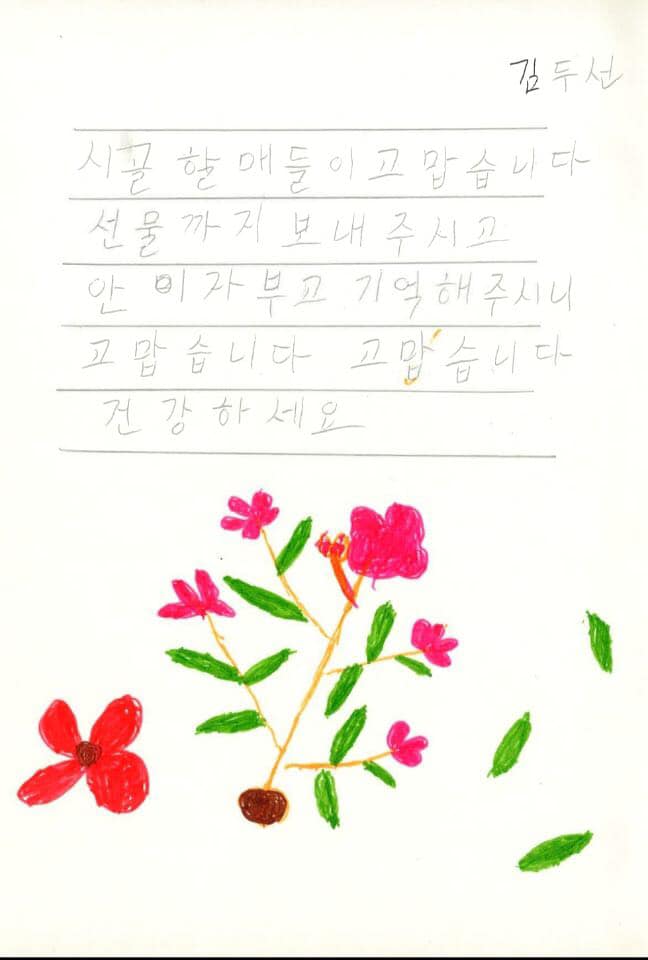 김두선
시골 할매들이고맙습니다
선물까지 보내주시고
안 이자부고 기억해주시니
고맙습니다 고맙습니다
건강하세요